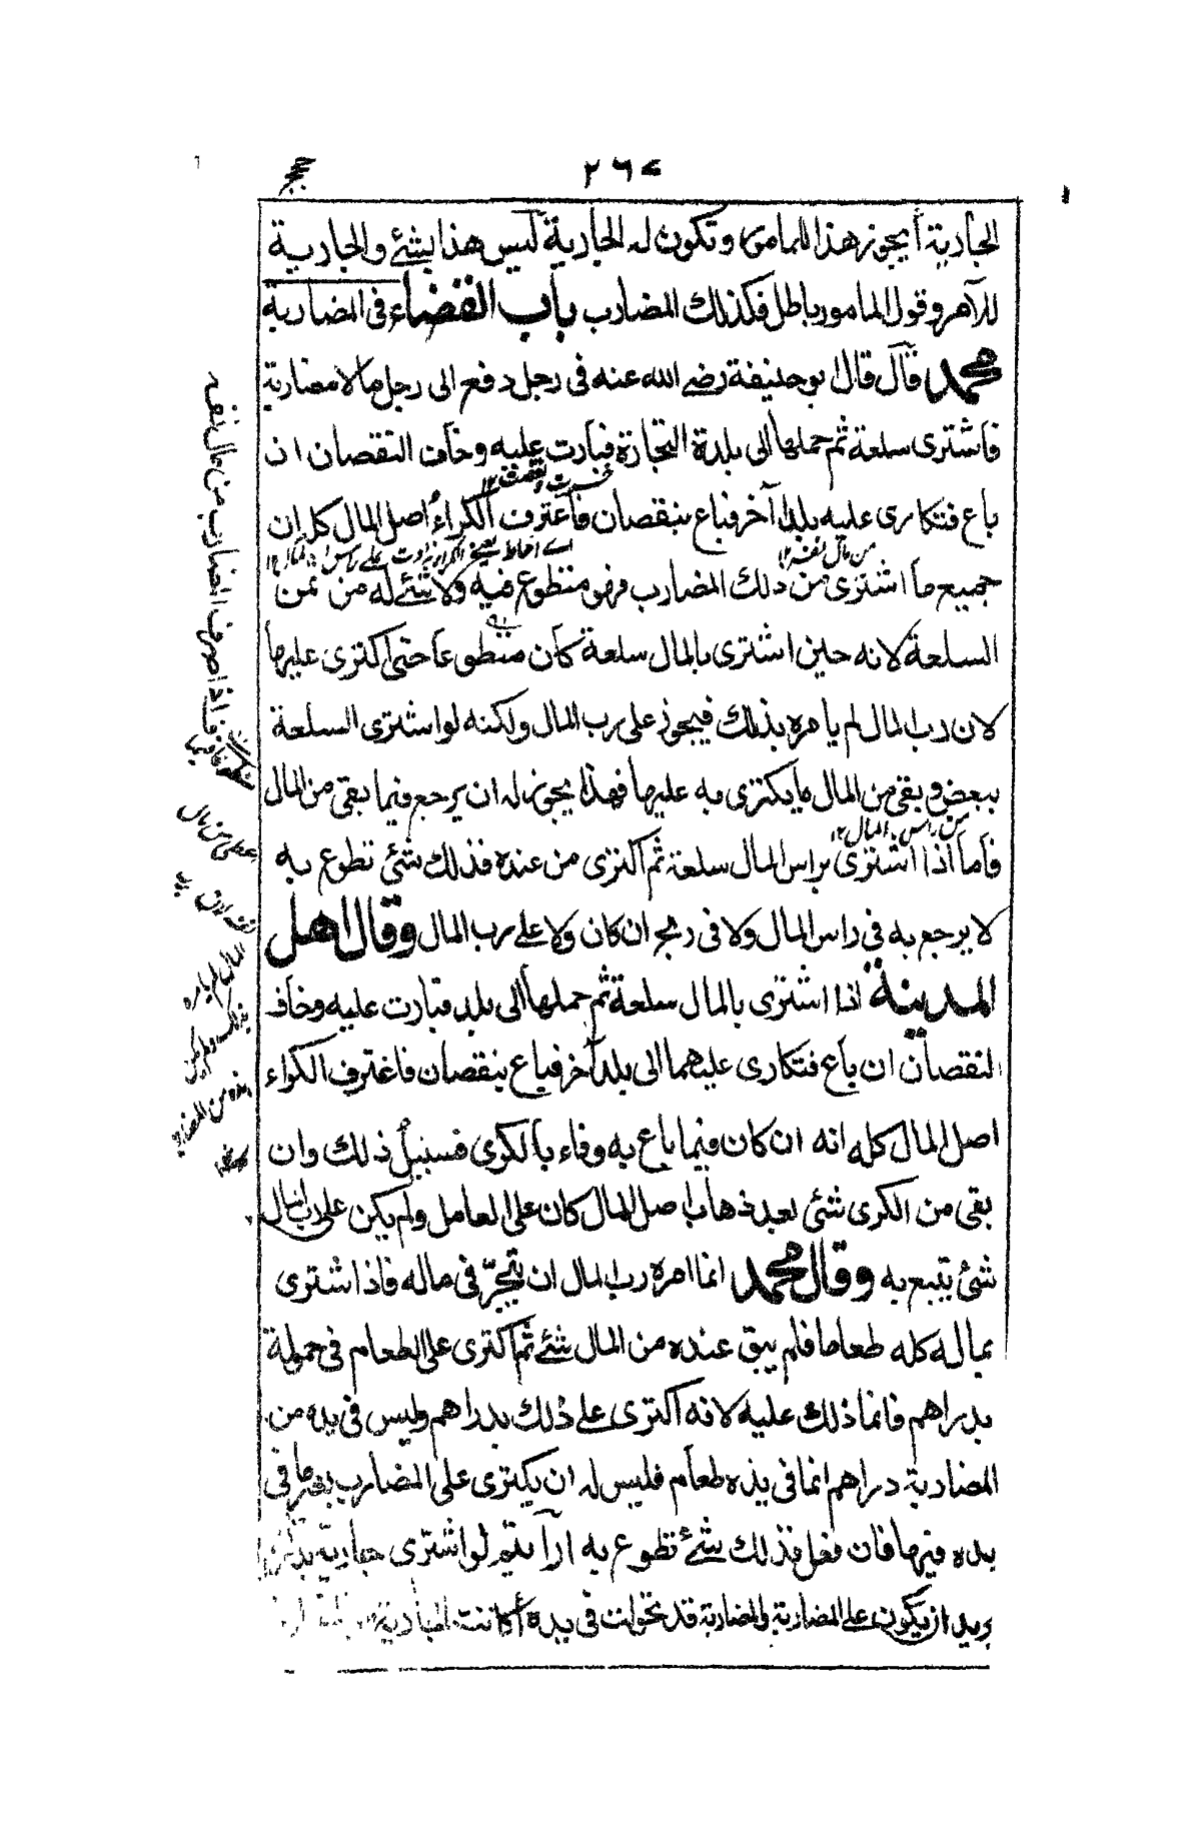 حجج ٢٦٧
الجارية أيجوز هذا للمامور وتكون له الجارية أليس هذا بشئ والجارية
للآمر وقول المامور باطل فكذلك المضارب باب القضاء فى المضاربة
محمد قال قال ابو حنيفة رضى الله عنه فى رجل دفع الى رجل مالا مضاربة
فاشترى سلعة ثم حملها الى بلدة التجارة فبارت عليه وخاف النقصان ان
باع فتكارى عليه بلدا آخر فباع بنقصان فاغترف الكراء اصل المال كله ان
جميع ما اشترى من ذلك المضارب فهو متطوع فيه ولا شئ له من ثمن
السلعة لانه حين اشترى بالمال سلعة كان متطوعا حتى اكترى عليها
لان رب المال لم يامره بذلك فيجوز على رب المال ولكنه لو اشترى السلعة
ببعض وبقى من المال ما يكترى به عليها فهذا يجوز له ان يرجع فيما بقى من المال
من راس المال ١٢
فاما اذا اشترى براس المال سلعة ثم اكترى من عنده فذلك شئ تطوع به
لا يرجع به فى راس المال ولا فى ربح ان كان ولا على رب المال وقال اهل
المدينة اذا اشترى بالمال سلعة ثم حملها الى بلد فبارت عليه وخاف
النقصان ان باع فتكارى عليهما الى بلد آخر فباع بنقصان فاغترف الكراء
اصل المال كله انه ان كان فيما باع به وفاء بالكرى فسبيل ذلك وان
بقى من الكرى شئ بعد ذهاب اصل المال كان على العامل ولم يكن على رب المال
شئ يتبع به وقال محمد انما امره رب المال ان يتجر فى ماله فاذا اشترى
بماله كله طعاما فلم يبق عنده من المال شئ ثم اكترى على الطعام فى حمولة
بدراهم فانما ذلك عليه لانه اكترى على ذلك بدراهم وليس فى يده من
المضاربة دراهم انما فى يده طعام فليس له ان يكترى على المضارب بغير ما فى
يده فيها فان فعل فذلك شئ تطوع به ارأيتم لو اشترى جارية
يريد ان يكون على المضاربة والمضاربة قد تحولت فى يده أكانت الجارية
فاذا صرف المضارب من مال نفسه